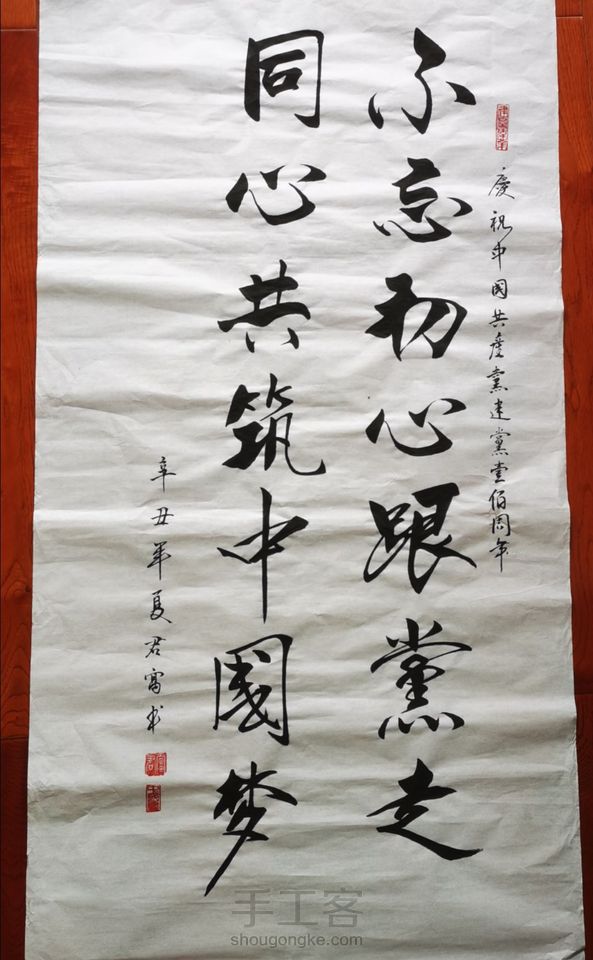 慶祝中国共產黨建黨壹佰周年
不忘初心跟黨走
同心共筑中國梦
辛丑年夏君富书
手工客
shougongke.com